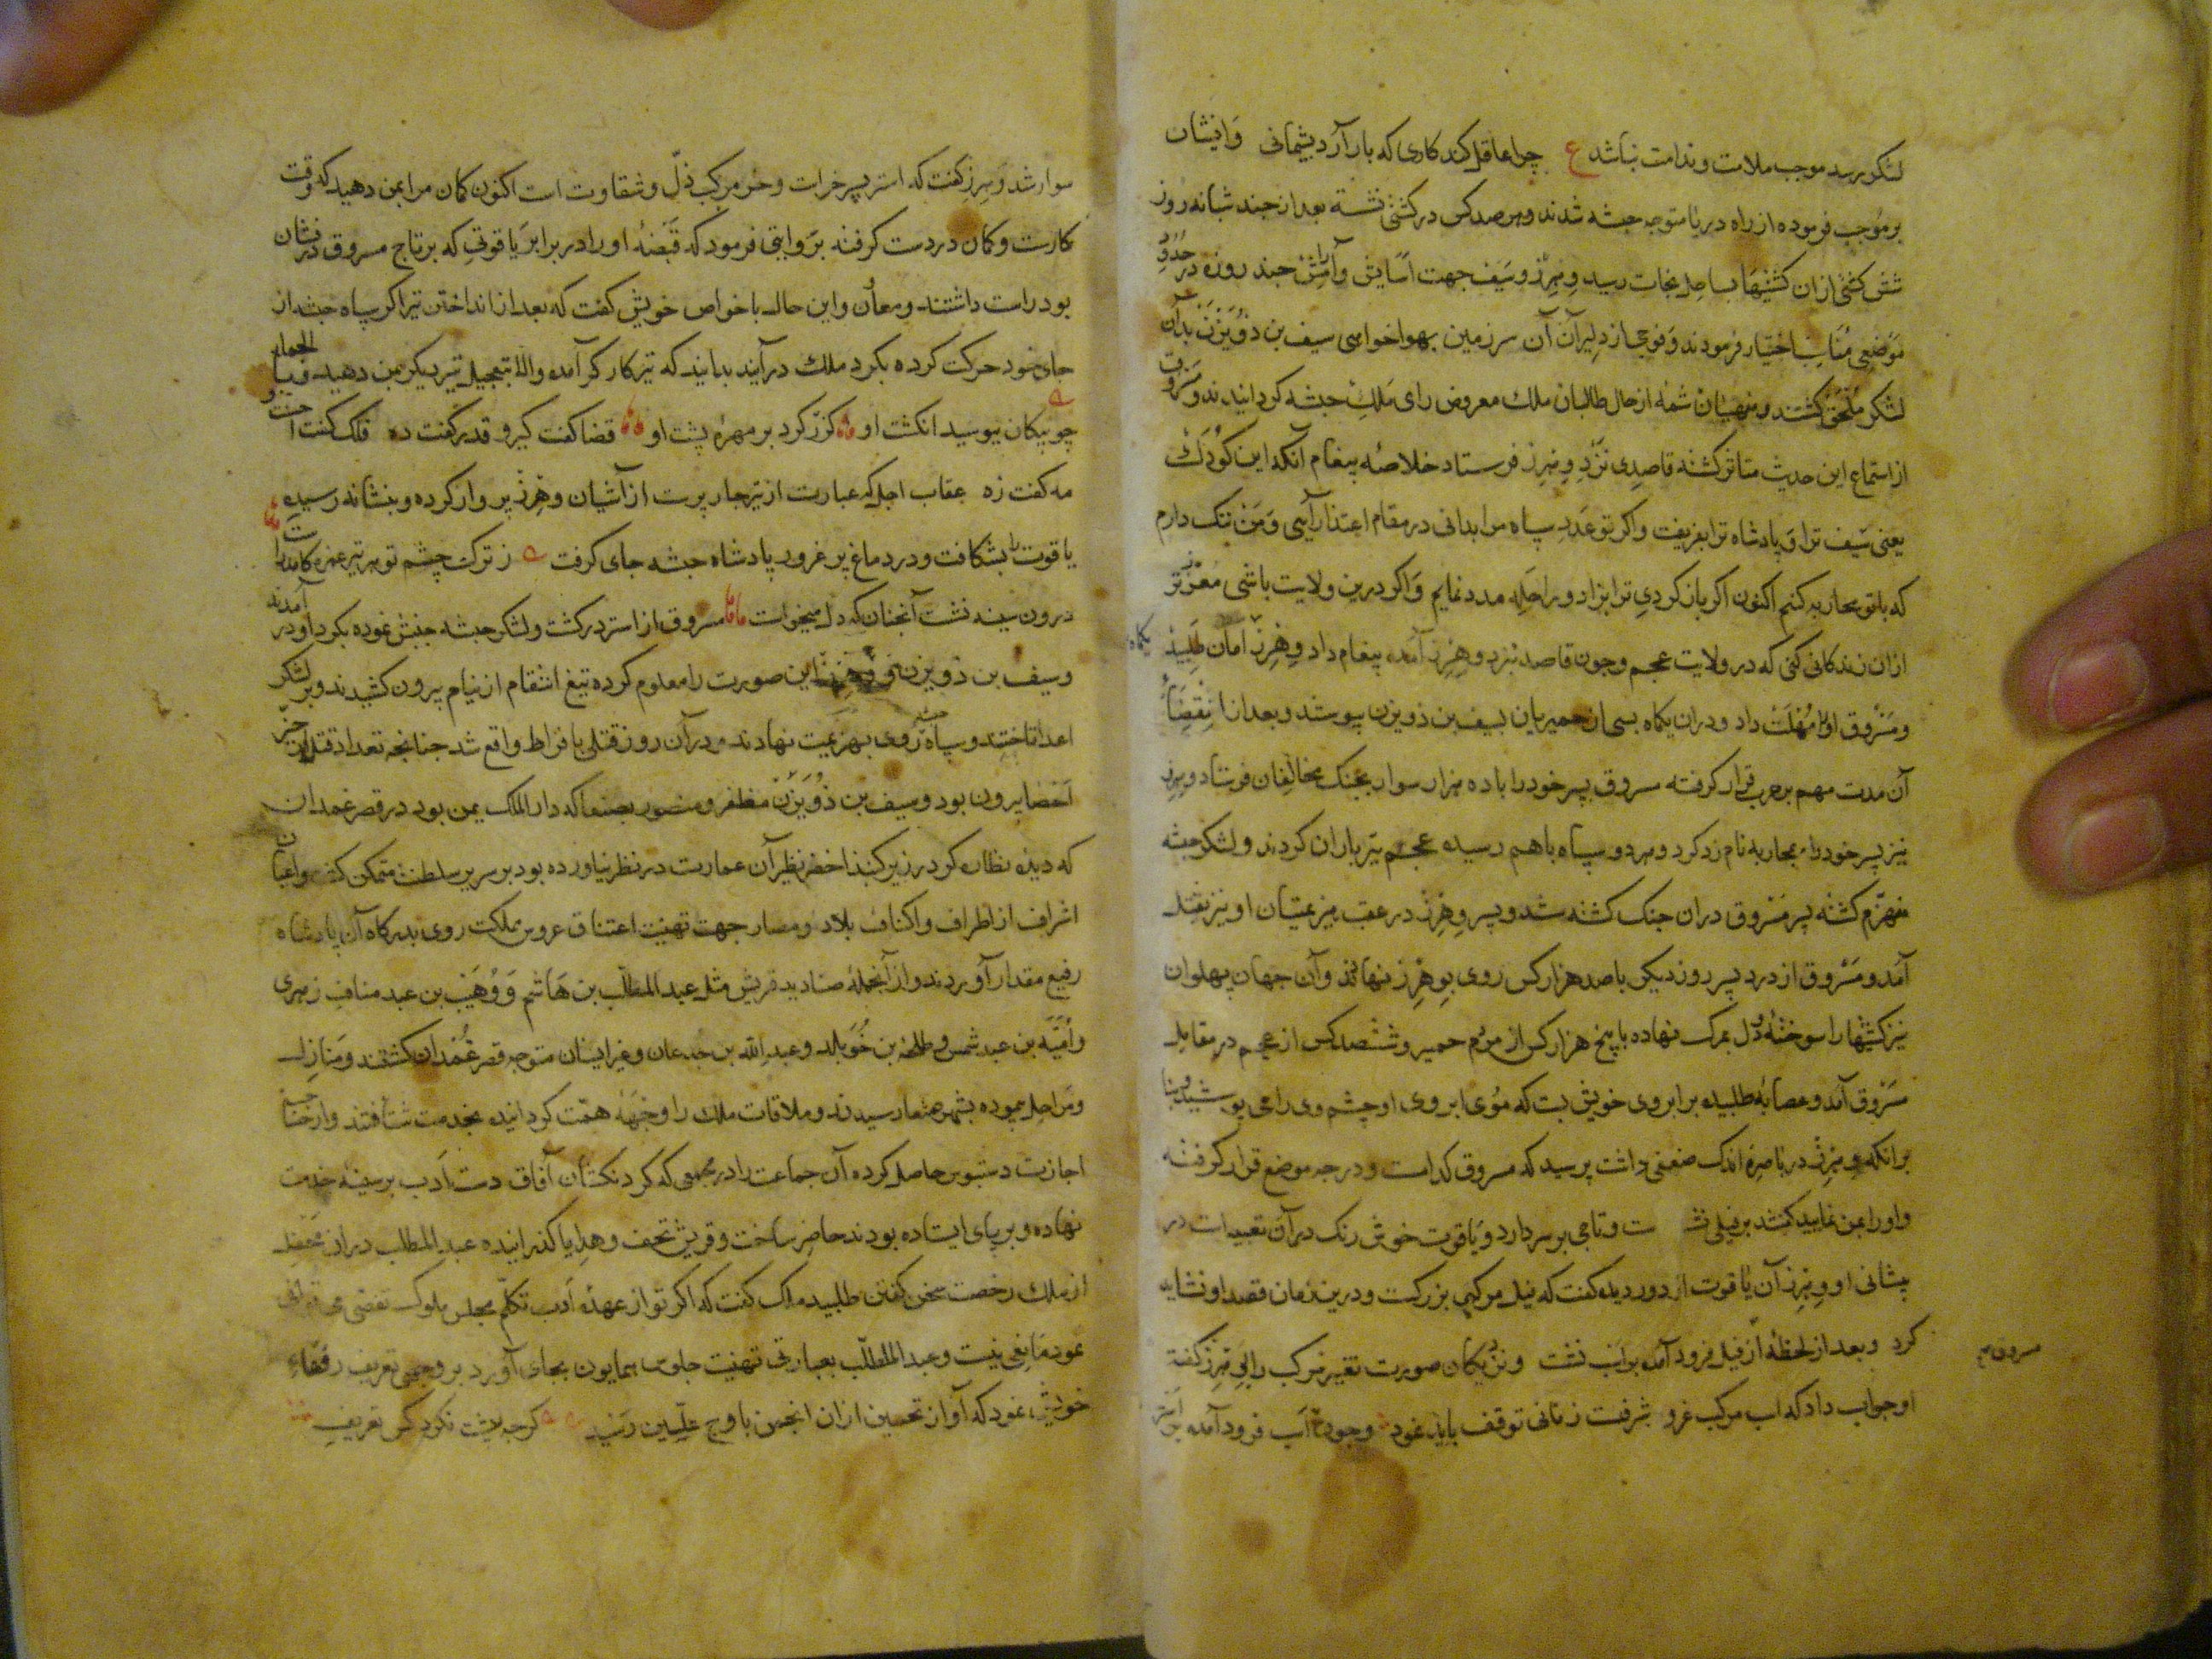 لشکر رسد موجب ملامت و ندامت نباشد ع چرا عاقل کند کاری که بار آرد پشیمانی و ایشان
بر موجب فرموده از راه دریا متوجه حبشه شدند و هر صد کس در کشتی نشسته بعد از چند شبانه روز
شش کشتی ازان کشتیها بساحل نجات رسید و هرز و سیف جهت آسایش و آرامش چند روزه در حدود
موضعی مناسب اختیار فرمودند و فوجی از دلیران آن سرزمین بهواخواهی سیف بن ذویزن بدان
لشکر ملحق گشتند و منهیان شمه از حال طالبان ملک معروض رای ملک حبشه گردانیدند و مسروق
از استماع این حدیث متاثر گشته قاصدی نزد وهرز فرستاد خلاصه پیغام آنکه این کودک
یعنی سیف ترا و پادشاه ترا بفریفت و اگر تو عدد سپاه مرا بدانی در مقام اعتذار آیی و من ننک دارم
که با تو محاربه کنم اکنون اگر باز کردی ترا بزاد و راحله مدد نمایم و اگر درین ولایت باشی معزز تر
ازان زندکانی کنی که در ولایت عجم و چون قاصد بنزد وهرز آمده پیغام داد وهرز امان طلبید یکماه
و مسروق او را مهلت داد و دران یکماه بسی از حمیریان بسیف بن ذویزن پیوستند و بعد از انقضاء
آن مدت مهم بر حرب قرار کرفته مسروق پسر خود را با ده هزار سوار بجنک مخالفان فرستاد و وهرز
نیز پسر خود را بمحاربه نام زد کرد و هر دو سپاه باهم رسیده عجم تیر باران کردند و لشکر حبشه
منهزم کشته پسر مسروق دران جنک کشته شد و پسر وهرز در عقب هزیمتیان او نیز بقتل
آمد و مسروق از درد پسر روز دیکر با صد هزار کس روی بوهرز نهاد و آن جهان پهلوان
نیز کشتیها را سوخته و دل بمرک نهاده با پنج هزار کس از مردم حمیر و ششصد کس از عجم در مقابل
مسروق آمد و عصابه طلبیده بر ابروی خویش بست که موی ابروی او چشم وی را می پوشید و بنا
بر انکه وهرز در باصره اندک ضعفی داشت پرسید که مسروق کدامست و در چه موضع قرار کرفته
و او را بمن نمایید کفتند بر فیلی نشست و تاجی بر سر دارد و یاقوت خوش رنک در آن تعبیه است در
پیشانی او وهرز آن یاقوت از دور دیده کفت که فیل مرکبی بزرکست و درین زمان قصد او نشاید
کرد و بعد از لحظه از فیل فرود آمده بر اسب نشست و نزدیکان صورت تغییر مرکب را بوهرز کفته
مسروق
او جواب داد که اسب مرکب عز و شرفست زمانی توقف باید نمود و چون از اسب فرود آمده بر استر
سوار شد وهرز کفت که استر پسر خرست و خر مرکب ذل و شقاوت است اکنون کمان مرا بمن دهید که وقت
کارست و کمان در دست کرفته بروایتی فرمود که قبضه او را در برابر یاقوتی که بر تاج مسروق درفشان
بود راست داشتند و مقارن این حال با خواص خویش کفت که بعد از انداختن تیر اکر سپاه حبشه از
جای خود حرکت کرده بکرد ملک درآیند بدانید که تیر کارکر آمده والا بتعجیل تیر دیکر بمن دهید
چو پیکان ببوسید انکشت او کذر کرد بر مهره پشت او قضا کفت کیر و قدر کفت ده فلک کفت احسنت
مه کفت زه عقاب اجل که عبارت از تیر چار پرست از آشیان وهرز پرواز کرده و بنشانه رسیده
یاقوت را بشکافت و در دماغ پر غرور پادشاه حبشه جای کرفت ز ترکت چشم تو هر تیر غمزه کامد راست
درون سینه نشست آنچنان که دل میخواست مسروق از استر در کشت و لشکر حبشه جنبش نموده بکرد او درآمدند
و سیف بن ذویزن و وهرز این صورت را معلوم کرده تیغ انتقام از نیام بیرون کشیدند و بر لشکر
اعدا تاختند و سپاه حبشه روی بهزیمت نهادند و در آن روز قتلی بافراط واقع شد چنانچه تعداد قتلی از حیز
احصا بیرون بود و سیف بن ذویزن مظفر و منصور بصنعا که دار الملک یمن بود در قصر غمدان
که دیده نظاره کر در زیر کنبذ اخضر نظیر آن عمارت در نظر نیاورده بود بر سریر سلطنت متمکن کشت و اعیان
اشراف از اطراف و اکناف بلاد و امصار جهت تهنیت اعتناق عروس مملکت روی بدرکاه آن پادشاه
رفیع مقدار آوردند و از آنجمله صنادید قریش مثل عبد المطلب بن هاشم و وهیب بن عبد مناف زهری
و امیه بن عبد شمس و طلحه بن خویلد و عبد الله بن جدعان و غیر ایشان متوجه قصر غمدان کشتند و منازل
و مراحل پیموده بشهر صنعا رسیدند و ملاقات ملک را وجهه همت کردانیده بخدمت شتافتند
اجازت دستبوس حاصل کرده آن جماعت را در مجمعی که کردنکشان آفاق دست ادب بر سینه خدمت
نهاده و بر پای ایستاده بودند حاضر ساخت و قریش تحف و هدایا کذرانیده عبد المطلب دران محفل
از ملک رخصت سخن کفتن طلبید ملک کفت که اکر تو از عهده ادب تکلم مجلس ملوک تفصی می توانی
نمود مانعی نیست و عبد المطلب بعبارتی تهنیت جلوس همایون بجای آورد بر وجهی تعریف رفقاء
خویش نمود که آواز تحسین ازان انجمن باوج علیین رسید کرچه پیشت نکرد کس تعریف